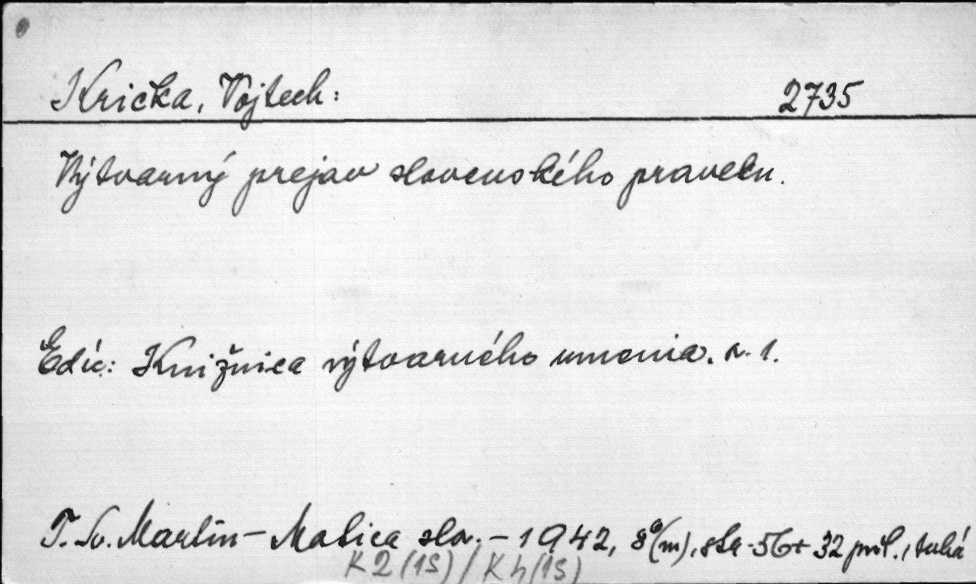 Krička, Vojtech: 2735
Výtvarný prejav slovenského praveku.
Edíc: Knižnica výtvarného umenia. s. 1.
T. Sv. Martin – Matica slov. – 1942, 8°(m), str. 56 + 32 príl., tuhá
K2(1S)/K4(1S)